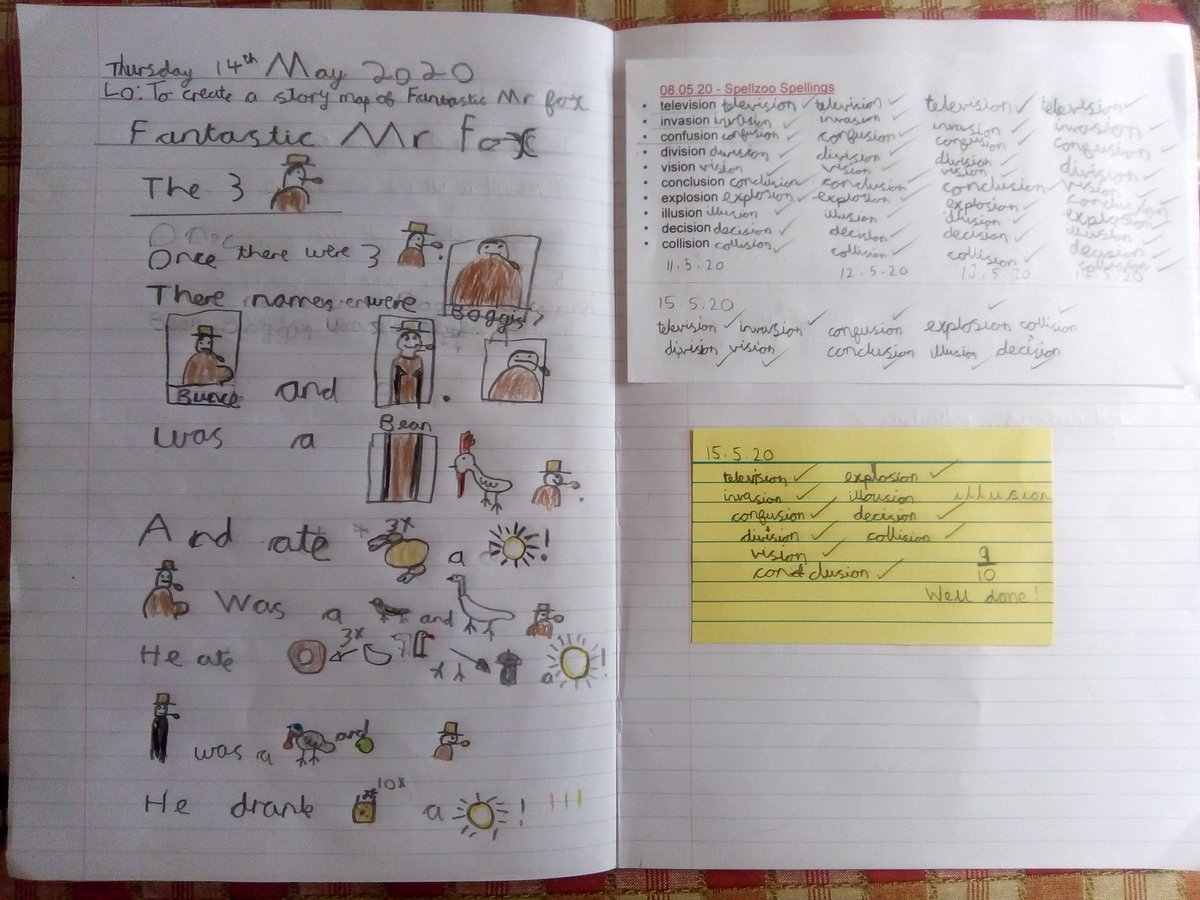 Thursday 14th May 2020
LO: To create a story map of Fantastic Mr fox
Fantastic Mr Fox
The 3
Once
Once there were 3
There names were
Boggis,
Bunce and
Bean
was a
And ate 3x a !
Was a and
He ate 3x a !
was a and
He drank 10x a !
08.05.20 - Spellzoo Spellings
• television television ✓ television ✓ television ✓ television ✓
• invasion invasion ✓ invasion ✓ invasion ✓ invasion ✓
• confusion confusion ✓ confusion ✓ confusion ✓ confusion ✓
• division division ✓ division ✓ division ✓ division ✓
• vision vision ✓ vision ✓ vision ✓ vision ✓
• conclusion conclusion ✓ conclusion ✓ conclusion ✓ conclusion
• explosion explosion ✓ explosion ✓ explosion ✓ explosion
• illusion illusion ✓ illusion ✓ illusion ✓ illusion ✓
• decision decision ✓ decision ✓ decision ✓ decision
• collision collision ✓ collision ✓ collision ✓
11.5.20 12.5.20 13.5.20
15.5.20
television ✓ invasion ✓ confusion ✓ explosion ✓ collision ✓
division ✓ vision ✓ conclusion ✓ illusion ✓ decision ✓
15.5.20
television ✓ explosion ✓
invasion ✓ illousion illusion
confusion ✓ decision ✓
division ✓ collision ✓
vision ✓ 9
conclusion ✓ 10
Well done!